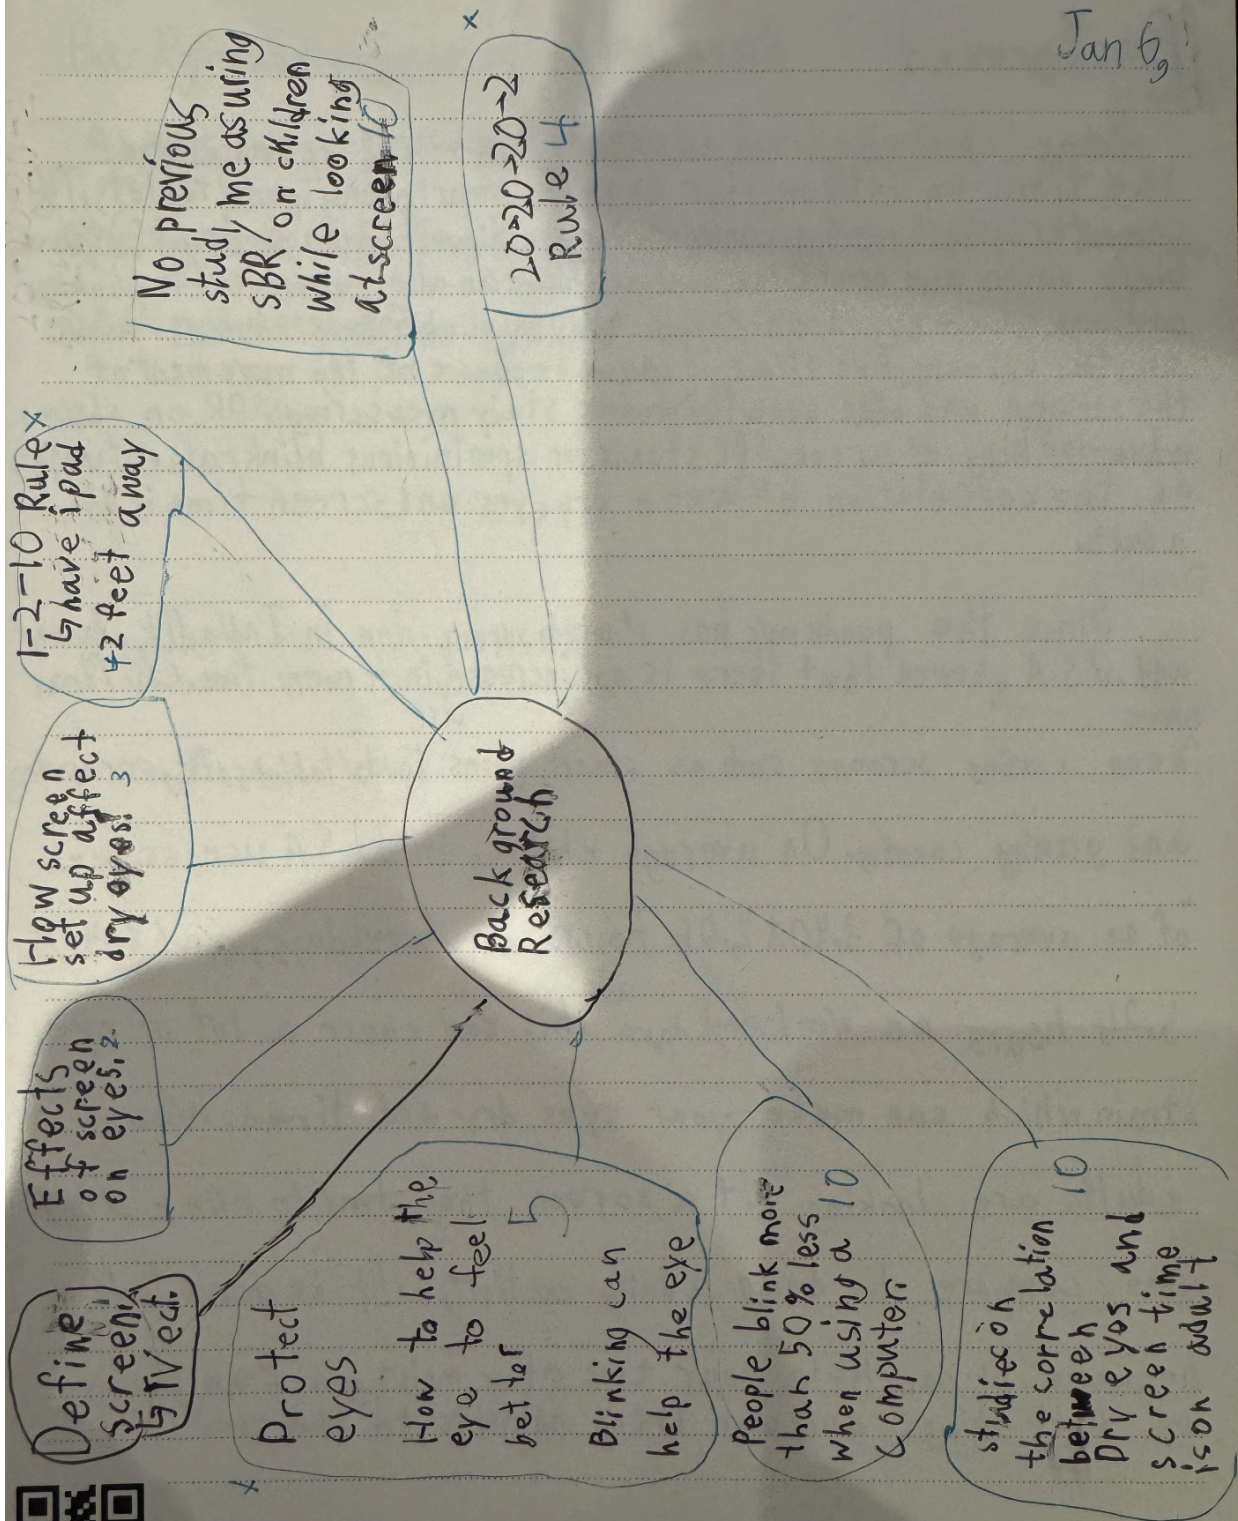 Jan 6,
Define
screen,
↳ Tvect.
Effects
of screen
on eyes. 2
How screen
set up affect
dry eyes. 3
1-2-10 Rule x
↳ have ipad
42 feet away
No previous
study measuring
SBR on children
while looking
at screen 10
x
20-20-20-2
Rule 4
Background
Research
x
Protect
eyes
How to help the
eye to feel
better 5
Blinking can
help the exe
People blink more
than 50% less
when using a 10
computer.
studies on
the correlation 10
between
Dry eyes and
screen time
is on adult